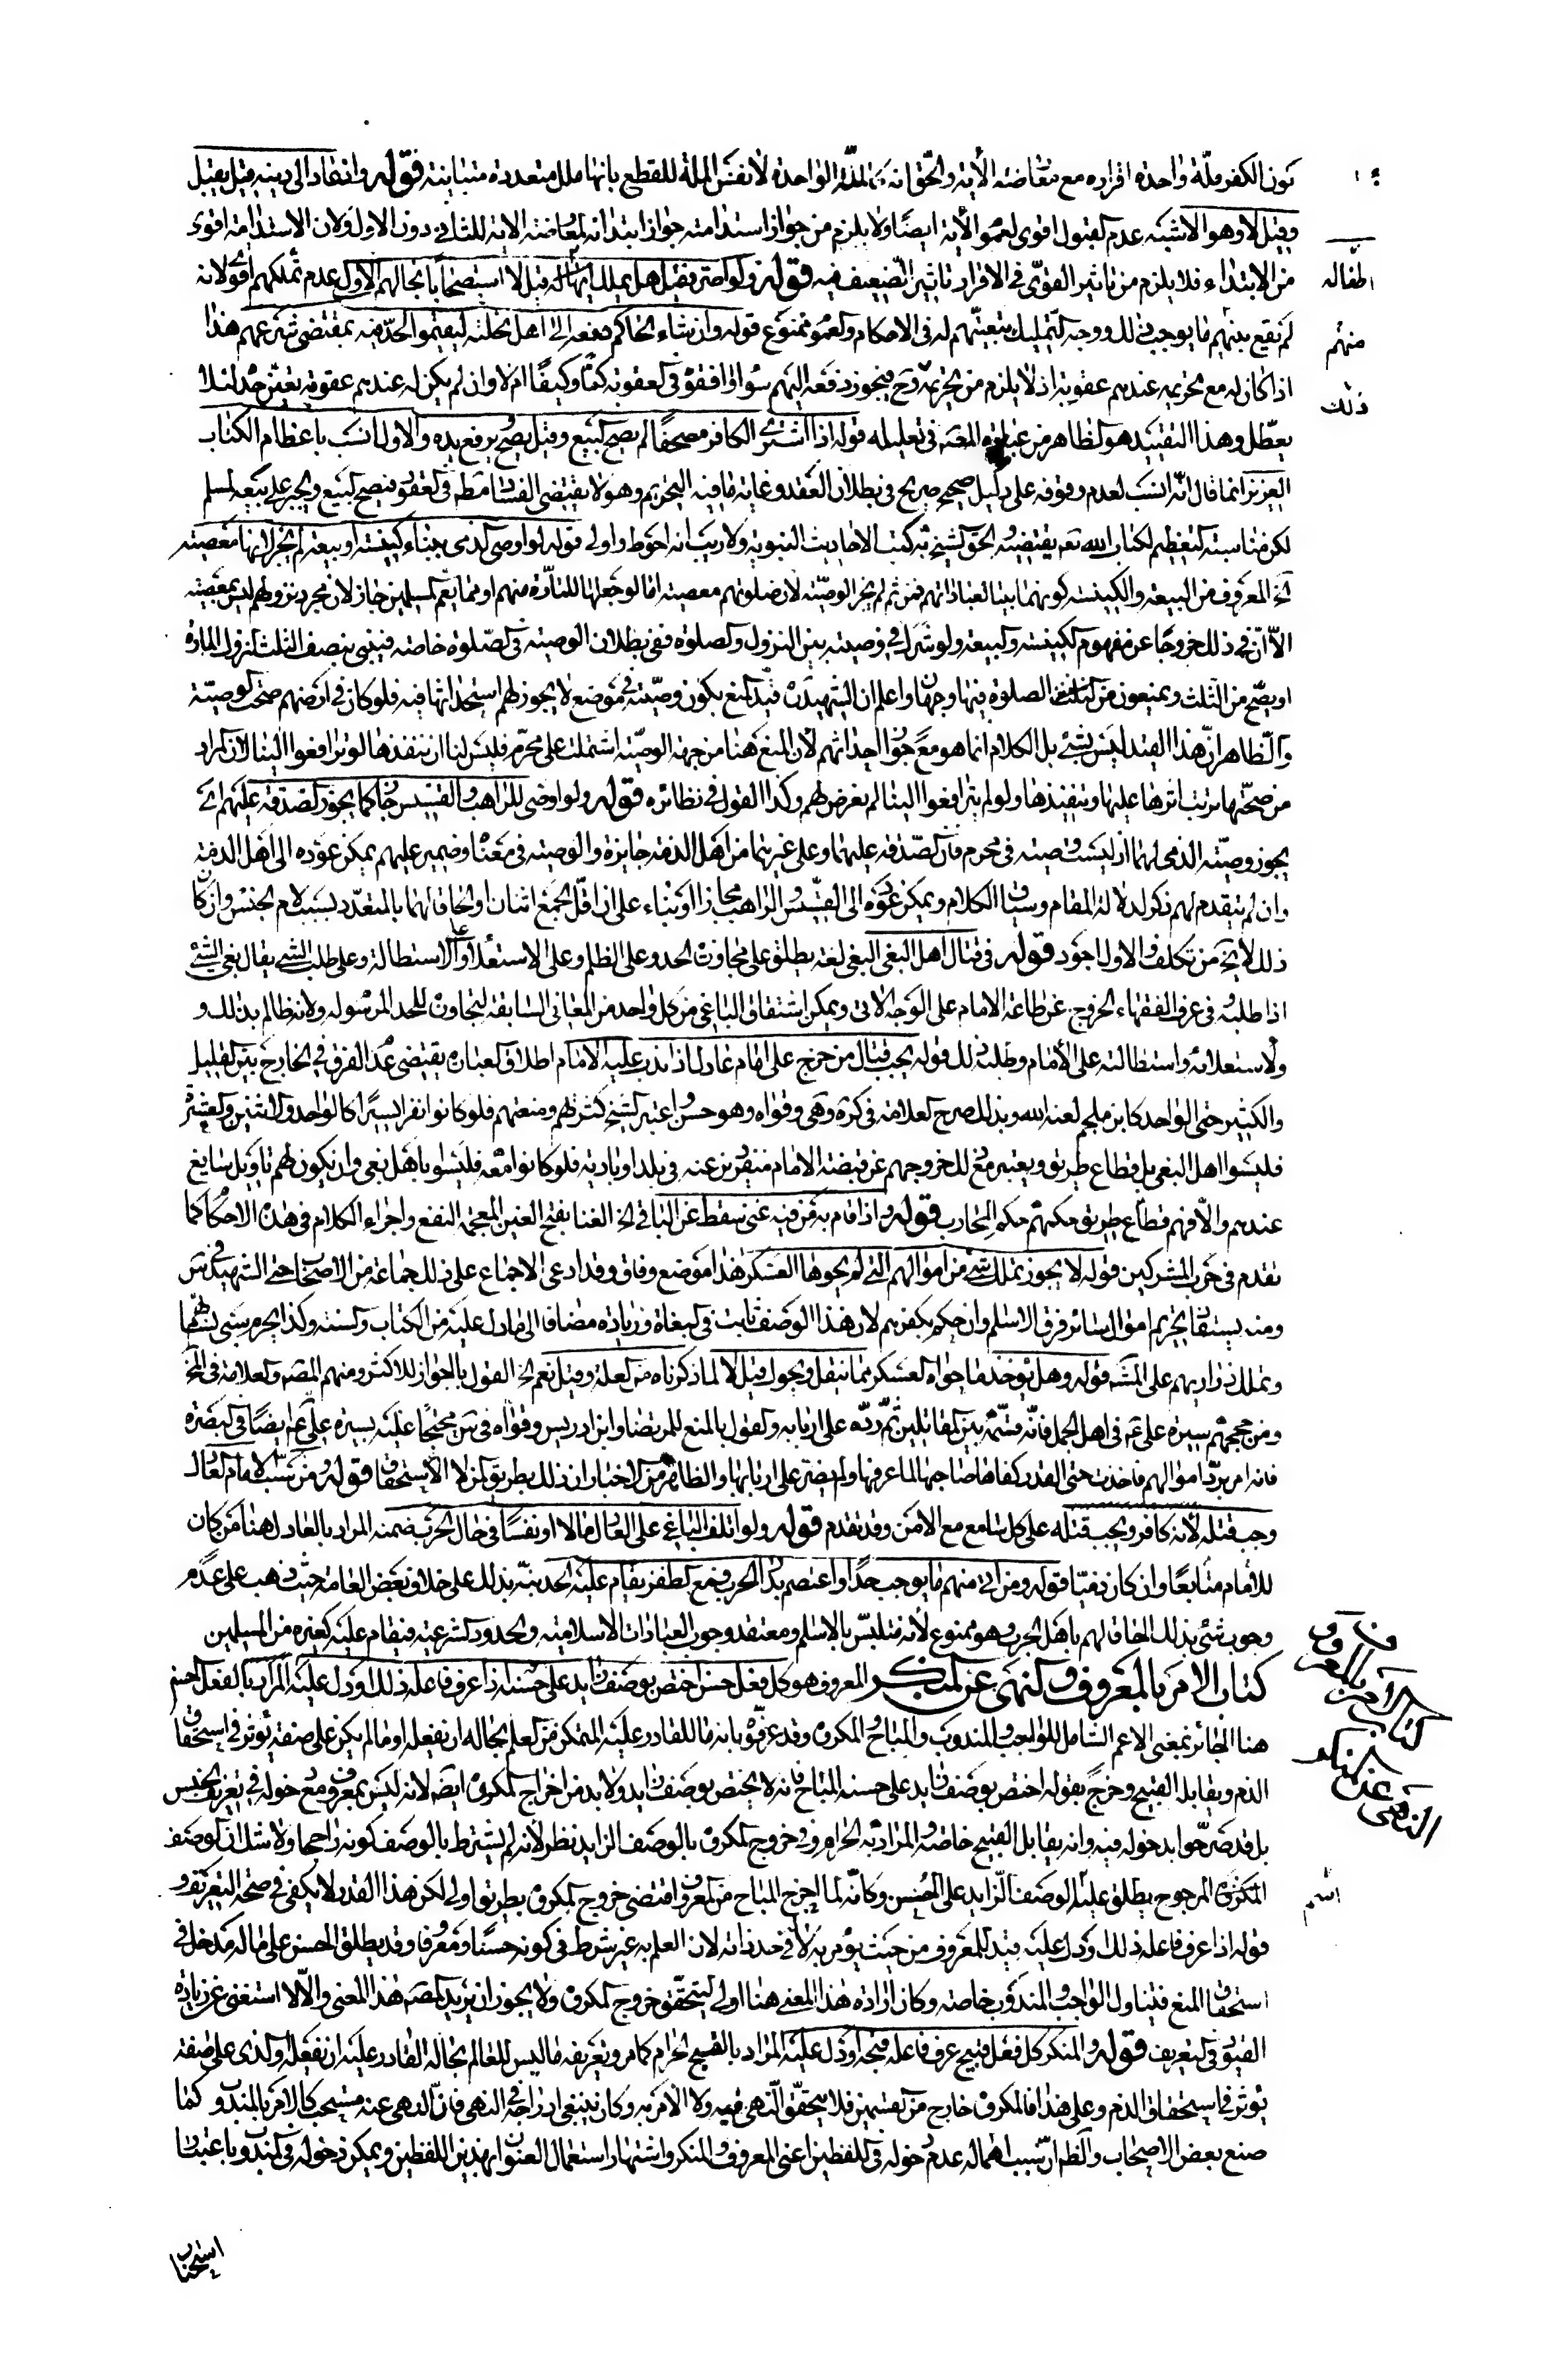 كون الكفر ملّة واحدة اقراره مع معارضته الآية والحق انه كالملّة الواحدة لا نفس الملة للقطع بانها ملل متعددة متباينة قوله وان عاد الى دينه قيل يقبل
وقيل لا وهو الاشبه عدم القبول اقوى لعموم الآية ايضا ولا يلزم من جواز استدامته جواز ابتدائه لمعارضة الاية للثاني دون الاول ولان الاستدامة اقوى
من الابتداء فلا يلزم من تاثير القوى في الاقرار تاثير الضعيف فيه قوله ولو اصر يقتل هل يملك اطفاله قيل لا استصحابا بحالهم الاول عدم تملكهم اقوى لانه
لم يقع منهم ما يوجب ذلك ووجه التمليك تبعيتهم له في الاحكام وعمومه ممنوع قوله وان شاء الحاكم دفعه الى اهل نحلته ليقيموا الحد فيه بمقتضى شرعهم هذا
اذا كان له مع تحريمه عندهم عقوبة اذ لا يلزم من تحريمه وح فيجوز دفعه اليهم سواء وافقوه في العقوبة كمّا وكيفا ام لا وان لم يكن له عندهم عقوبة تعين حده لئلا
يعطل وهذا التقييد هو الظاهر من عبارة المص في تعليله قوله اذا اشترى الكافر مصحفا لم يصح البيع وقيل يصح ويرفع يده والاول انسب باعظام الكتاب
العزيز انما قال انه انسب لعدم وقوفه على دليل صحيح صريح في بطلان العقد وغاية ما فيه التحريم وهو لا يقتضي الفساد مط في العقود فيصح البيع ويجبر على بيعه لمسلم
لكن مناسبة التعظيم لكتاب الله تع يقتضيه والحق الشيخ به كتب الاحاديث النبوية ولا ريب انه احوط واولى قوله لو اوصى الذمى ببناء كنيسة او بيعة لم يجز لانها معصية
الخ المعروف من البيعة والكنيسة كونهما بيتا لعباداتهم فمن ثم لم يجز الوصية لان صلوتهم معصية اما لو جعلها للمارة منهم او مما يعم المسلمين جاز لان مجرد نزولهم ليس بمعصية
الا ان في ذلك خروجا عن مفهوم الكنيسة والبيعة ولو شرك في وصيته بين النزول والصلوة ففي بطلان الوصية في الصلوة خاصة فيبنى بنصف الثلث لنزول المارة
او يصح من الثلث ويمنعون من الصلوة فيها وجهان واعلم ان الشهيد ره قيد المنع بكون وصيته في موضع لا يجوز لهم استحداثها فيه فلو كان في ارضهم صحت الوصية
والظاهر ان هذا القيد ليس بشئ بل الكلام انما هو مع جواز احداثهم لان المنع هنا من جهة الوصية اشتملت على محرم فليس لنا ان ننفذها لو ترافعوا الينا لان المراد
من صحتها ترتب اثرها عليها وتنفيذها ولو لم يترافعوا الينا لم نعرض لهم وكذا القول في نظائره قوله ولو اوصى للراهب والقسيس جاز كما يجوز الصدقة عليهم اى
يجوز وصية الذمى لهما اذ ليست وصيته في محرم فان الصدقة عليهما وعلى غيرهما من اهل الذمة جايزة والوصية في معناها وضمير عليهم يمكن عوده الى اهل الذمة
وان لم يتقدم لهم ذكر لدلالة المقام وسياق الكلام ويمكن عوده الى القسيس والراهب مجازا او بناء على ان اقل الجمع اثنان او الحاقا لهما بالمتعدد بسبب لام الجنس وان كان
ذلك لا يخ من تكلف والاول اجود قوله في قتال اهل البغى البغى لغة يطلق على مجاوزة الحد وعلى الظلم وعلى الاستعلاء والاستطالة وعلى طلب الشئ يقال بغى الشئ
اذا طلبه وفي عرف الفقهاء الخروج عن طاعة الامام على الوجه الاتى ويمكن اشتقاق الباغى من كل واحد من المعانى السابقة لتجاوزه للحد المرسوم له ولانه ظالم بذلك و
ولاستعلائه واستطالته على الامام وطلبه ذلك قوله يجب قتال من خرج على امام عادل اذا ندب عليه الامام اطلاق العبارة يقتضى عدم الفرق في الخارج بين القليل
والكثير حتى الواحد كابن ملجم لعنه الله وبذلك صرح العلامة في كره وهى وقواه وهو حسن واعتبر الشيخ كثرتهم ومنعتهم فلو كانوا نفرا يسيرا كالواحد والاثنين والعشرة
فليسوا اهل البغى بل قطاع طريق ويعتبر مع ذلك خروجهم عن قبضة الامام منفردين عنه في بلد او بادية فلو كانوا معه فليسوا باهل بغى وان يكون لهم تاويل سايغ
عندهم والا فهم قطاع طريق حكمهم حكم المحارب قوله واذا قام به من فيه غنى سقط عن الباقى الخ الغنا بفتح الغين المعجمة النفع واجراء الكلام في هذه الاحكام كما
تقدم في حرب المشركين قوله لا يجوز تملك شئ من اموالهم التى لم يحوها العسكر هذا موضع وفاق وقد ادعى الاجماع على ذلك جماعة من الاصحاب حتى الشهيد في س
ومنه يستفاد تحريم اموال سائر فرق الاسلام وان حكم بكفرهم لان هذا الوصف ثابت في البغاة وزيادة مضافا الى ما دل عليه من الكتاب والسنة وكذا يحرم سبى نسائهم
وتملك ذراريهم على المشه قوله وهل يؤخذ ما حواه العسكر مما ينقل ويحول قيل لا لما ذكرناه من العلة وقيل نعم الخ القول بالجواز للاكثر ومنهم المصه والعلامة في المخ
ومن حججهم سيرة على ع في اهل الجمل فانه قسمه بين المقاتلين ثم رده على اربابه والقول بالمنع للمرتضى وابن ادريس وقواه في س محتجا عليه بسيرة على ع ايضا في البصرة
فانه امر برد اموالهم فاخذت حتى القدر كفاها صاحبها لما عرفها ولم يصبر على اربابها والظاهر من الاخبار ان ذلك بطريق المن لا الاستحقاق قوله ومن سب الامام العادل
وجب قتله لانه كافر ويجب قتله على كل سامع مع الامن وقد تقدم قوله ولو اتلف الباغى على العادل مالا او نفسا في حال الحرب ضمنه المراد بالعادل هنا من كان
للامام متابعا وان كان ذميا قوله ومن اتى منهم ما يوجب حدا واعتصم بدار الحرب فمع الظفر يقام عليه الحد نبه بذلك على خلاف بعض العامة حيث ذهب على عدم
وجوب شئ بذلك الحاقا لهم باهل الحرب وهو ممنوع لانه متلبس بالاسلام ومعتقد وجوب العبادات الاسلامية والحدود الشرعية فيقام عليه كغيره من المسلمين
كتاب الامر بالمعروف والنهى عن المنكر المعروف هو كل فعل حسن اختص بوصف زايد على حسنه اذا عرف فاعله ذلك او دل عليه المراد بالفعل الحسن
هنا الجائز بمعنى الاعم الشامل للواجب والمندوب والمباح والمكروه وقد عرفوه بانه ما للقادر عليه المتمكن من العلم بحاله ان يفعله او ما لم يكن على صفة يؤثر في استحقاق
الذم ويقابله القبيح وخرج بقوله اختص بوصف زايد على حسنه المباح فانه لا يختص بوصف زايد ولا بد من اخراج المكروه ايضا لانه ليس بمعروف مع دخوله في تعريف الحسن
بل قد صرحوا بدخوله فيه وانه يقابل القبيح خاصة والمراد به الحرام وفي خروج المكروه بالوصف الزايد نظر لانه لم يشترط بالوصف كونه راجحا ولا شك ان الوصف
المكروه المرجوح يطلق عليه اسم الوصف الزايد على الحسن وكانه لما اخرج المباح من المعروف اقتضى خروج المكروه بطريق اولى لكن هذا القدر لا يكفى في صحة التعريف و
قوله اذا عرف فاعله ذلك او دل عليه قيد للمعروف من حيث يؤمر به لا في حد ذاته لان العلم به غير شرط في كونه حسنا ومعروفا وقد يطلق الحسن على ما له مدخل في
استحقاق المنع فيتناول الواجب والمندوب خاصة وكان ارادة هذا المعنى هنا اولى ليتحقق خروج المكروه ولا يجوز ان يريد المصه هذا المعنى والا لاستغنى عن زيادة
القيود في التعريف قوله والمنكر كل فعل قبيح عرف فاعله قبحه او دل عليه المراد بالقبيح الحرام كما مر وتعريفه ما ليس للعالم بحاله القادر عليه ان يفعله او الذى على صفة
تؤثر في استحقاق الذم وعلى هذا فالمكروه خارج من القسمين فلا يتحقق النهى فيه ولا الامر به وكان ينبغى ادراجه في النهى فان النهى عنه مستحب كالامر بالمندوب كما
صنع بعض الاصحاب والظ ان سبب اهماله عدم دخوله في اللفظين اعنى المعروف والمنكر واشتهار استعمال العنوان بهذين اللفظين ويمكن دخوله في المندوب باعتبار
استحباب
اطفاله
منهم
ذلك
كتاب الامر بالمعروف
النهى عن المنكر
اسم